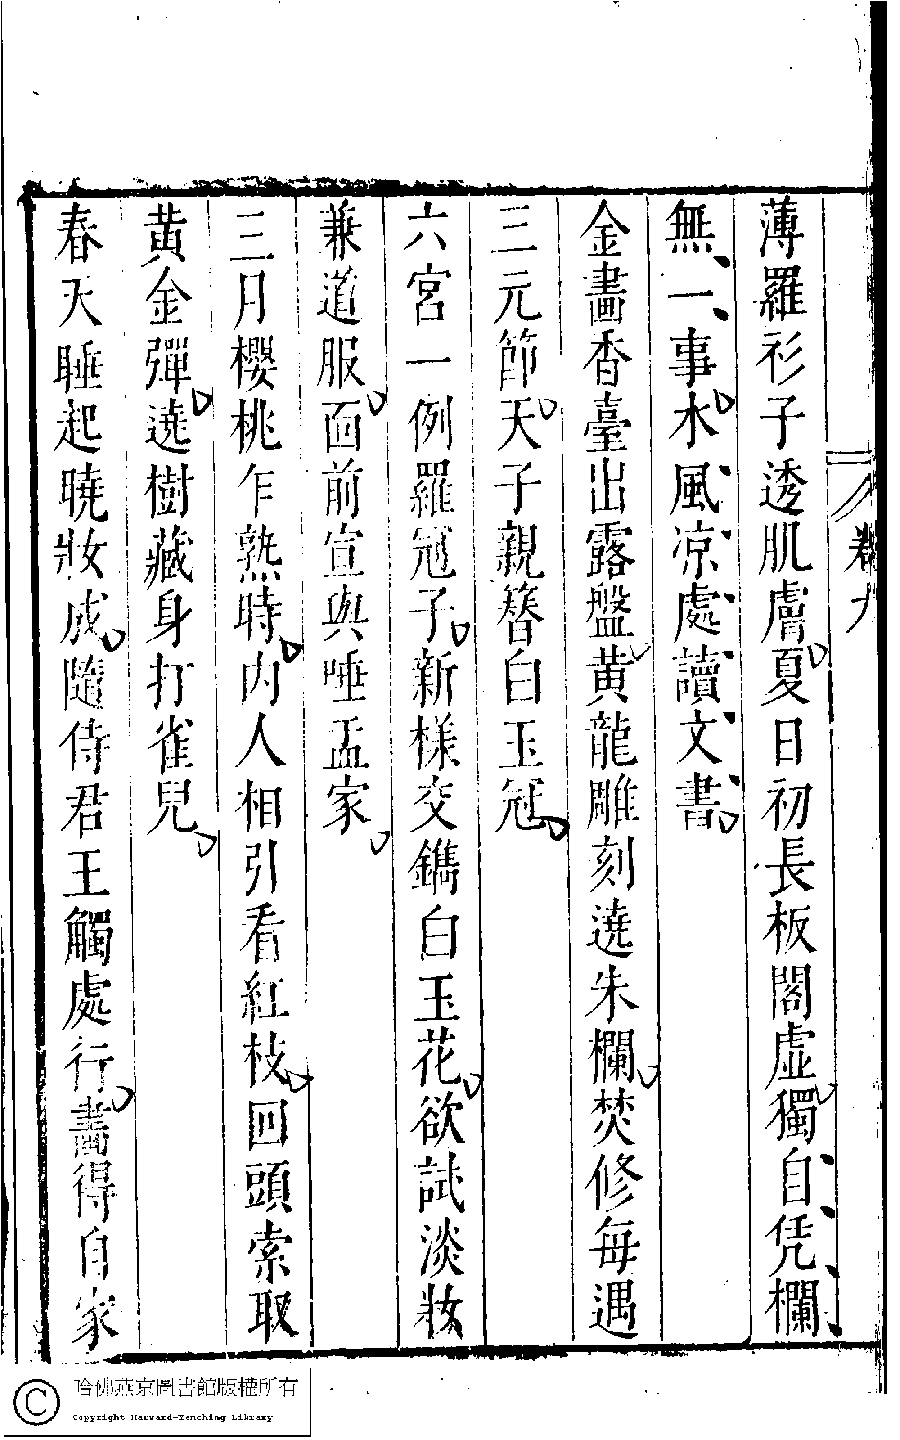 卷九
薄羅衫子透肌膚夏日初長板閣虛獨自凭欄
無一事水風凉處讀文書
金畫香臺出露盤黃龍雕刻遶朱欄焚修每遇
三元節天子親簪白玉冠
六宮一例羅冠子新樣交鐫白玉花欲試淡妝
兼道服面前宣與唾盂家
三月櫻桃乍熟時內人相引看紅枝回頭索取
黃金彈遶樹藏身打雀兒
春天睡起曉妝成隨侍君王觸處行畫得自家
哈佛燕京圖書館版權所有
Copyright Harvard-Yenching Library